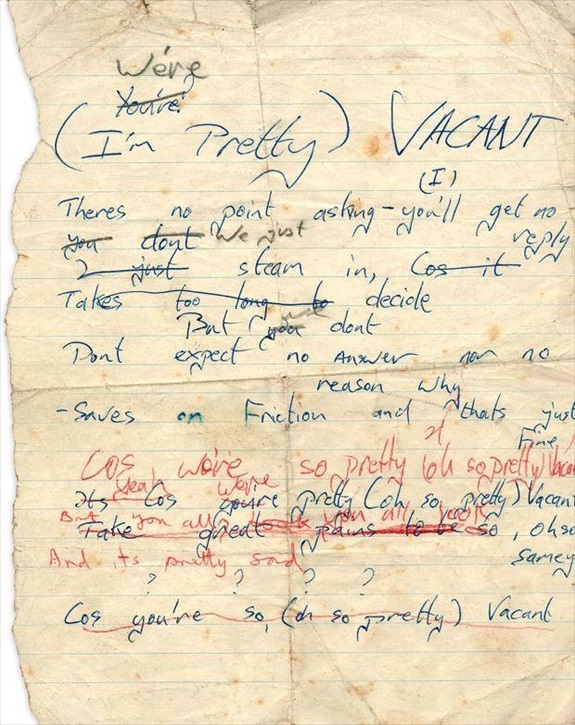 We're
You're
(I'm Pretty) VACANT
(I)
Theres no point asking - you'll get no
reply
you dont We just
I just steam in, Cos it
Takes too long to decide
just
But you dont
Dont expect no ANSWER nor no
reason why
- Saves on Friction and thats just
Fine
Cos we're so pretty (oh so pretty) Vacant
yeah we're
Its Cos you're pretty (oh so pretty) Vacant
But you all you all
Take great pains to be so, oh so
Samey
And its pretty sad
? ? ? ?
Cos you're so, (oh so pretty) Vacant